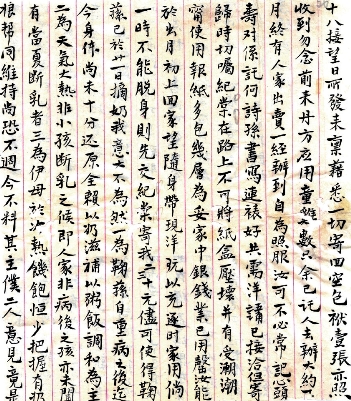 十八接望日所發來稟藉悉一切寄回空包袱壹張亦照
收到勿念前來丹方应用童雞大數只余已托人去辦大約
月終有人家出賣一經辦到自為照服汝可不必常記念頭
壽对係託何詩孫書寫連裱好共需洋請已接洽但寄
歸時切囑紀棠在路上不可將紙盒壓壞并有受潮潮
甯使用報紙多包幾層為妥家中銀錢業已用罄汝能
於出月初上回家望隨身帶現洋 玩以充逐时家用倘
一時不能脫身則先交紀棠寄我二十元儘可使得鞠
蓀已於廿一日摘奶我意大不為然一為鞠蓀自重病之後迄
今身体尚未十分还原全賴以奶滋補以粥飯調和為主
二為天氣大熱非小孩斷乳之候即人家非病後之孩亦未聞
有當炎斷乳者三為伊母於冷熱饑飽恒少把握有奶
根帮同維持尚恐不週今不料其主僕二人意見竟是